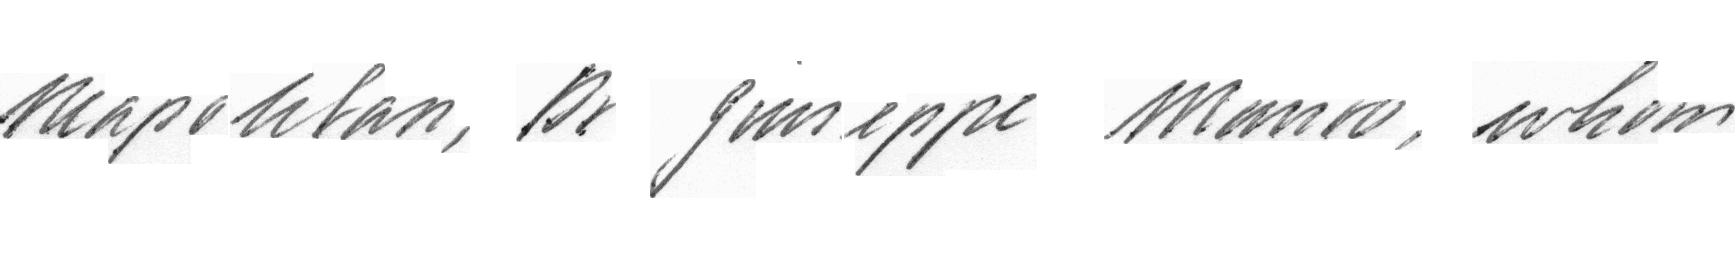 Neapolitan, Dr Giuseppe Mauro, whom